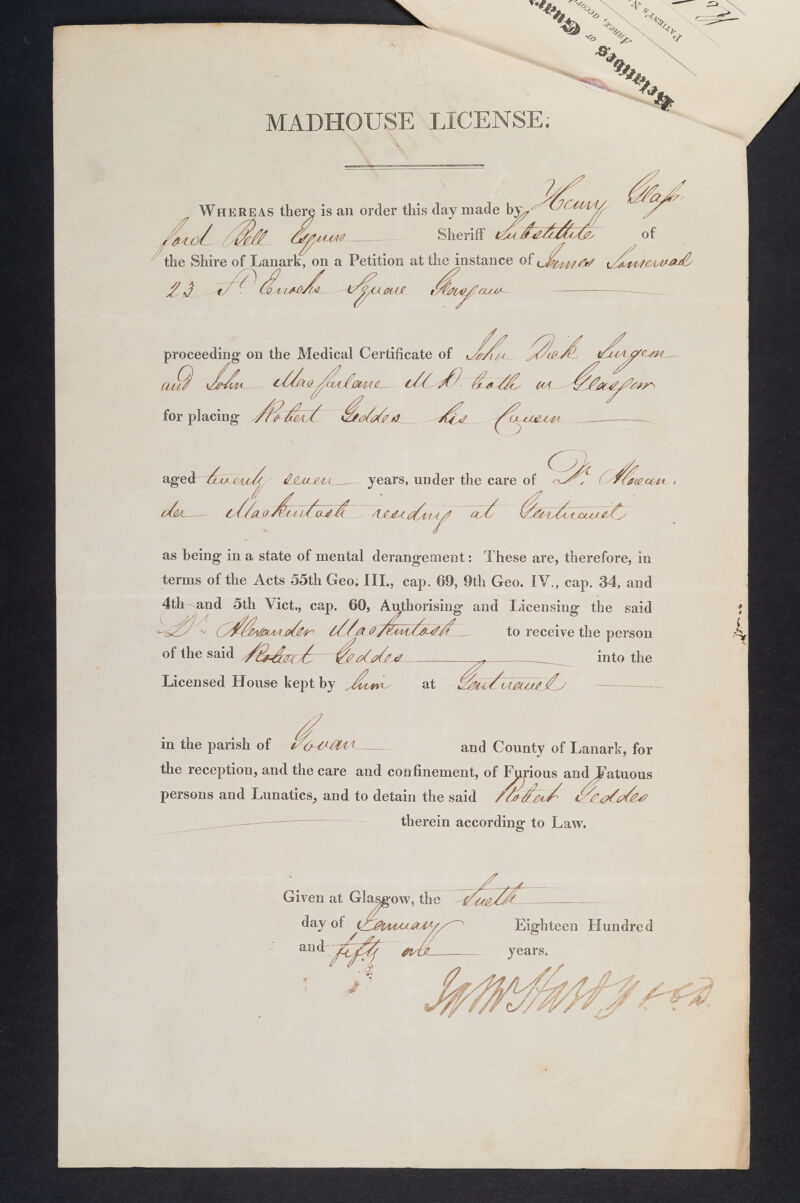 Relatives or Guar
Annex, accord
PATIENT'S N
MADHOUSE LICENSE.
WHEREAS there is an order this day made by Henry Glass-
ford Bell Esquire Sheriff Substitute of
the Shire of Lanark, on a Petition at the instance of James
23 St. Enochs Square Glasgow
proceeding on the Medical Certificate of John Dick Surgeon
and John Macfarlane M D. both in Glasgow
for placing Robert Geddes his Cousin
aged twenty seven years, under the care of Dr. Alexan-
der Mackintosh residing at Gartnavel
as being in a state of mental derangement: These are, therefore, in
terms of the Acts 55th Geo. III., cap. 69, 9th Geo. IV., cap. 34, and
4th and 5th Vict., cap. 60, Authorising and Licensing the said
Dr. Alexander Mackintosh to receive the person
of the said Robert Geddes into the
Licensed House kept by him at Gartnavel
in the parish of Govan and County of Lanark, for
the reception, and the care and confinement, of Furious and Fatuous
persons and Lunatics, and to detain the said Robert Geddes
therein according to Law.
Given at Glasgow, the
day of January Eighteen Hundred
and fifty one years.